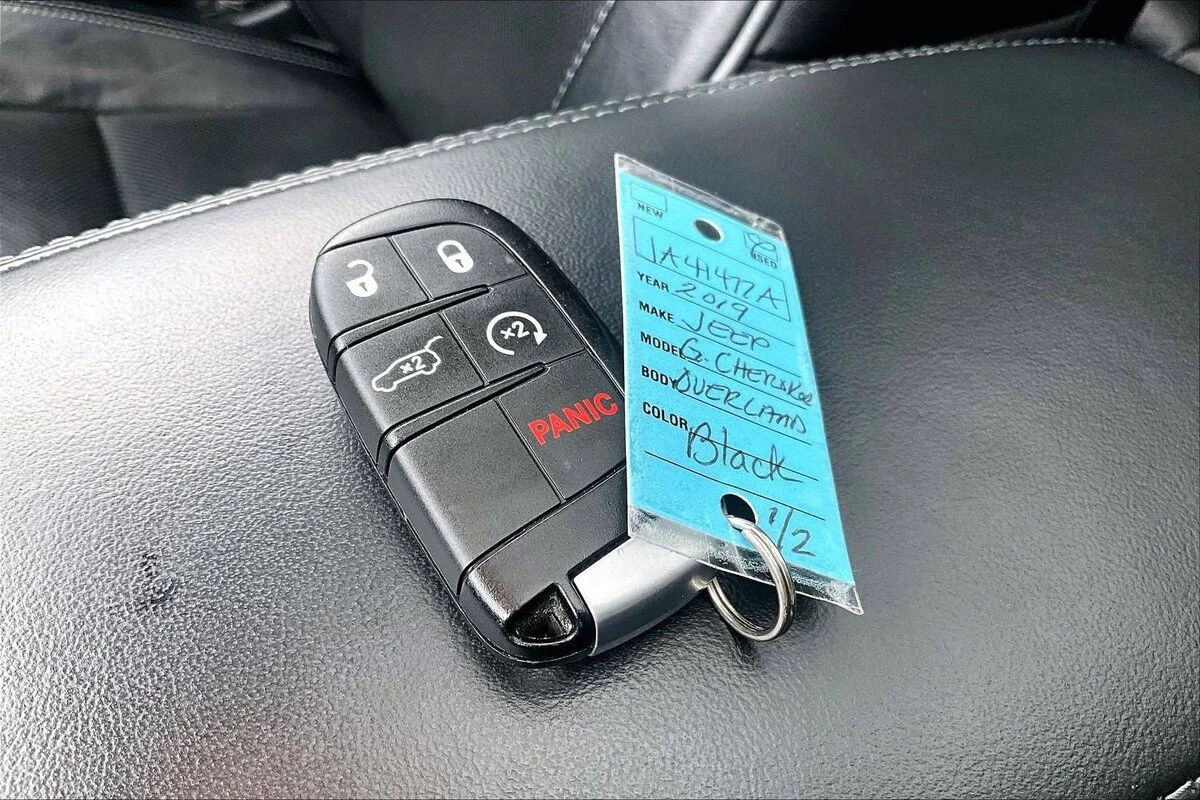 ×2
×2
PANIC
NEW
USED
1A41472A
YEAR 2019
MAKE JEEP
MODEL G. CHEROKEE
BODY OVERLAND
COLOR Black
1/2